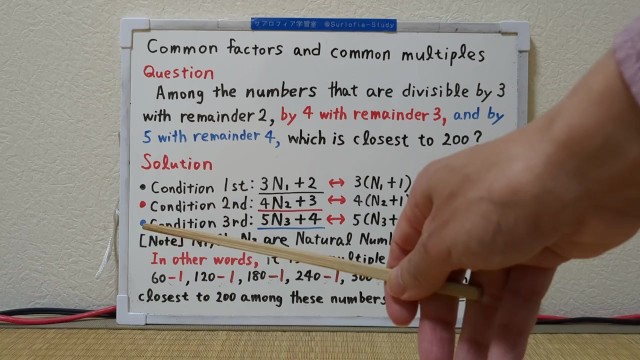 リアロフィア学習室 @Surlofia-Study
Common factors and common multiples
Question
Among the numbers that are divisible by 3
with remainder 2, by 4 with remainder 3, and by
5 with remainder 4, which is closest to 200?
Solution
• Condition 1st: 3N₁+2 ↔ 3(N₁+1)
• Condition 2nd: 4N₂+3 ↔ 4(N₂+1
• Condition 3rd: 5N₃+4 ↔ 5(N₃+
[Note] are Natural
In other words,
60-1, 120-1, 180-1, 240-1,
closest to 200 among these numbers